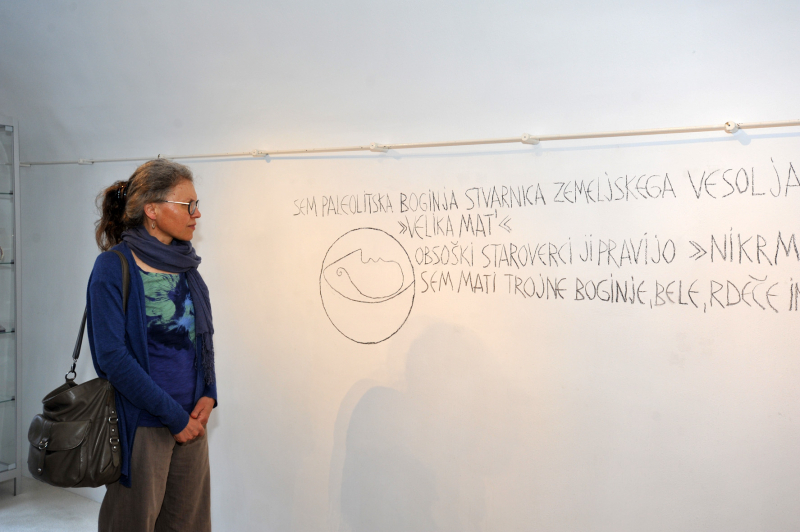 SEM PALEOLITSKA BOGINJA STVARNICA ZEMELJSKEGA VESOLJA
»VELIKA MAT'«
OBSOŠKI STAROVERCI JI PRAVIJO »NIKRM
SEM MATI TROJNE BOGINJE, BELE, RDEČE IN